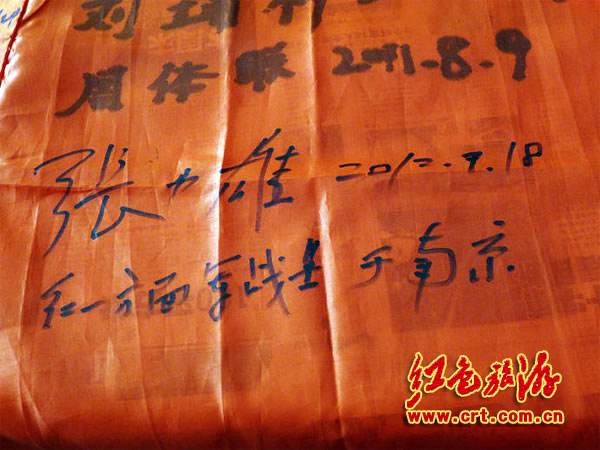 刘
周体联 2011.8.9
張力雄 2012.9.18
红一方面军战士 于南京
红色旅游
www.crt.com.cn